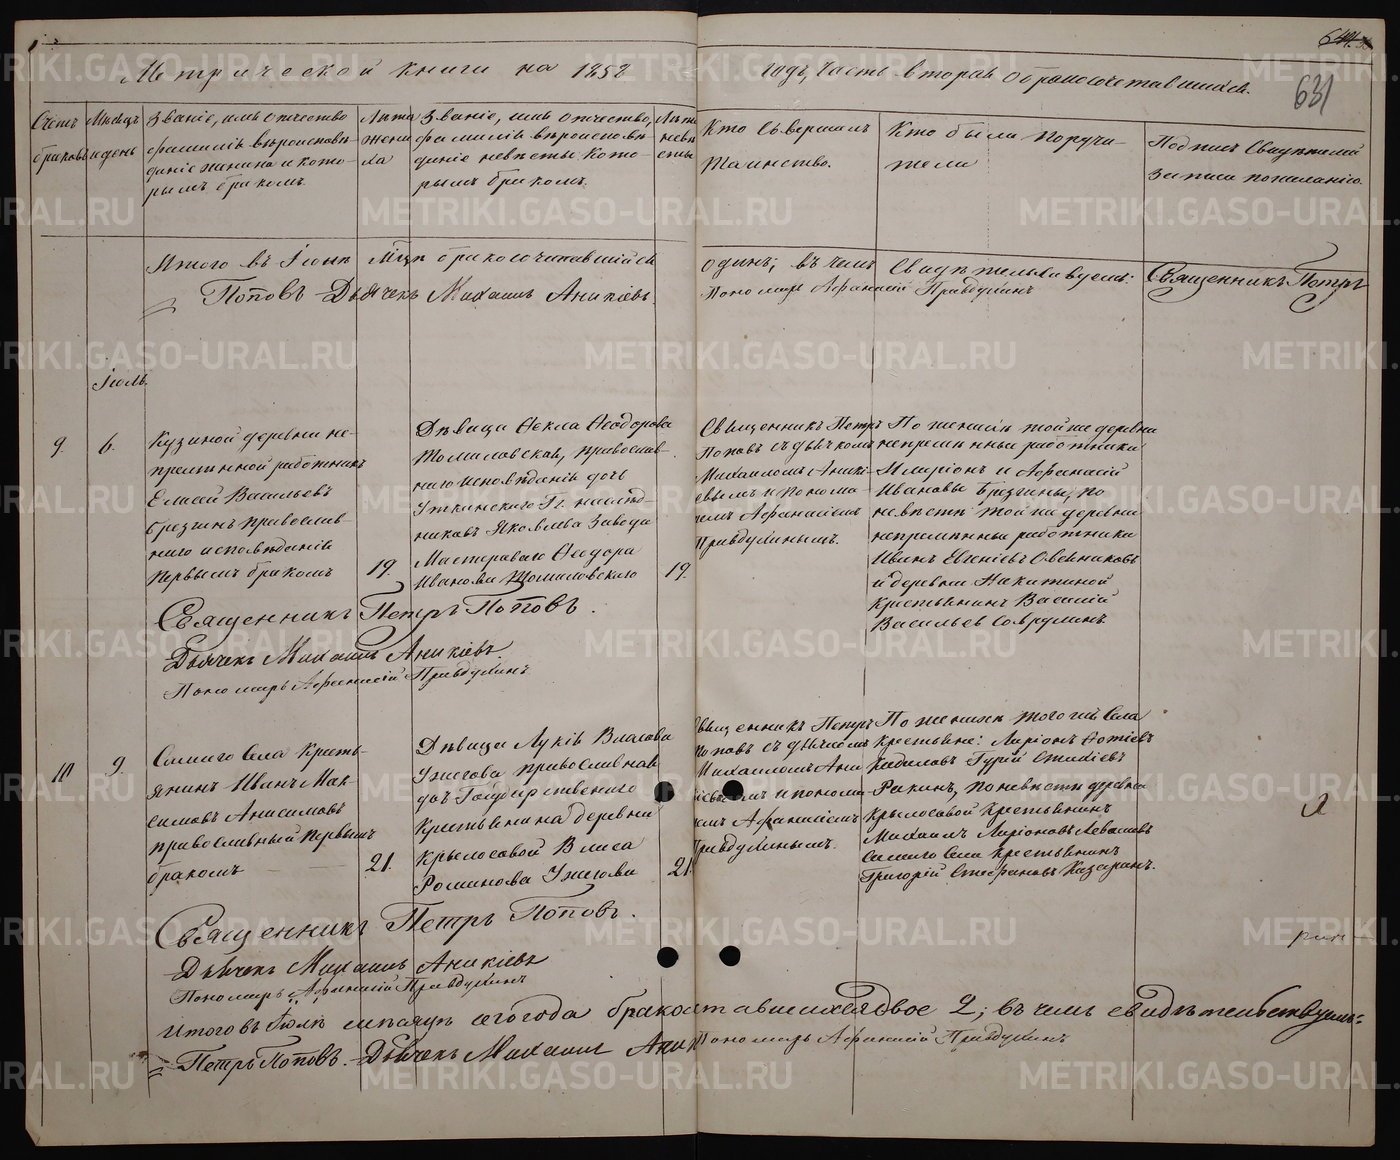 Метрической книги на 1858 годъ, часть вторая о бракосочетавшихся.
631
Счетъ браковъ
Мѣсяцъ и день
Званіе, имя отчество
фамилія вѣроисповѣ-
даніе жениха и кото-
рымъ бракомъ.
Лѣта
жени
ха
Званіе, имя, отчество,
фамилія вѣроисповѣ-
даніе невѣсты кото-
рымъ бракомъ.
Лѣта
невѣ
сты
Кто Совершалъ
Таинство.
Кто были поручи-
тели
Подпись Свидѣтелей
записи по желанію.
Итого въ Іюнѣ мѣцѣ бракосочитавшійся одинъ; въ чемъ Свидѣтельствуемъ: Священникъ Петръ
Поповъ Дьячекъ Михаилъ Аникіевъ. Пономарь Афанасій Правдухинъ
Іюль.
9.
6.
Кузиной деревни не-
премѣнной работникъ
Елисей Васильевъ
Брезгинъ православ-
наго исповѣданія
первымъ бракомъ
19.
Дѣвица Ѳекла Ѳеодорова
Томиловская, православ-
наго исповѣданія дочь
Уткинскаго Гг. наслѣд-
никовъ Яковлева Завода
Мастероваго Ѳеодора
Иванова Томиловскаго
19.
Священникъ Петръ
Поповъ съ дьячкомъ
Михаиломъ Аникі-
евымъ и понома-
ремъ Афанасіемъ
Правдухинымъ.
По женихѣ той же деревни
непремѣнныя работники
Иларіонъ и Афанасій
Ивановы Брезгины, по
невѣстѣ той же деревни
непремѣнныя работники
Иванъ Евгеніевъ Овсянниковъ
и деревни Никитиной
Крестьянинъ Василій
Васильевъ Соврулинъ
Священникъ Петръ Поповъ.
Дьячекъ Михаилъ Аникіевъ.
Пономарь Афанасій Правдухинъ
10
9.
Самаго Села Кресть-
янинъ Иванъ Мак-
симовъ Анисимовъ
православный первымъ
бракомъ
21.
Дѣвица Лукія Власова
Ужегова православная
дочь Государственнаго
Крестьянина деревни
Крылосовой Власа
Романова Ужегова
21.
Священникъ Петръ
Поповъ съ дьячкомъ
Михаиломъ Ани
кіевымъ и понома
ремъ Афанасіемъ
Правдухинымъ.
По женихѣ того жъ Села
Крестьяне: Ларіонъ Фотіевъ
Кадиловъ Гурій
Ракинъ, по невѣстѣ деревни
Крылосовой Крестьянинъ
Михаилъ Ларіоновъ Левашевъ
самаго Села Крестьянинъ
Григорій Стефановъ Казаринъ.
Священникъ Петръ Поповъ.
Дьячекъ Михаилъ Аникіевъ
Пономарь Афанасій Правдухинъ
Итого въ Іюлѣ мѣсяцѣ сего года бракосочетавшихся двое 2; въ чемъ свидѣтельствуемъ:
Петръ Поповъ. Дьячекъ Михаилъ Аник Пономарь Афанасій Правдухинъ
METRIKI.GASO-URAL.RU